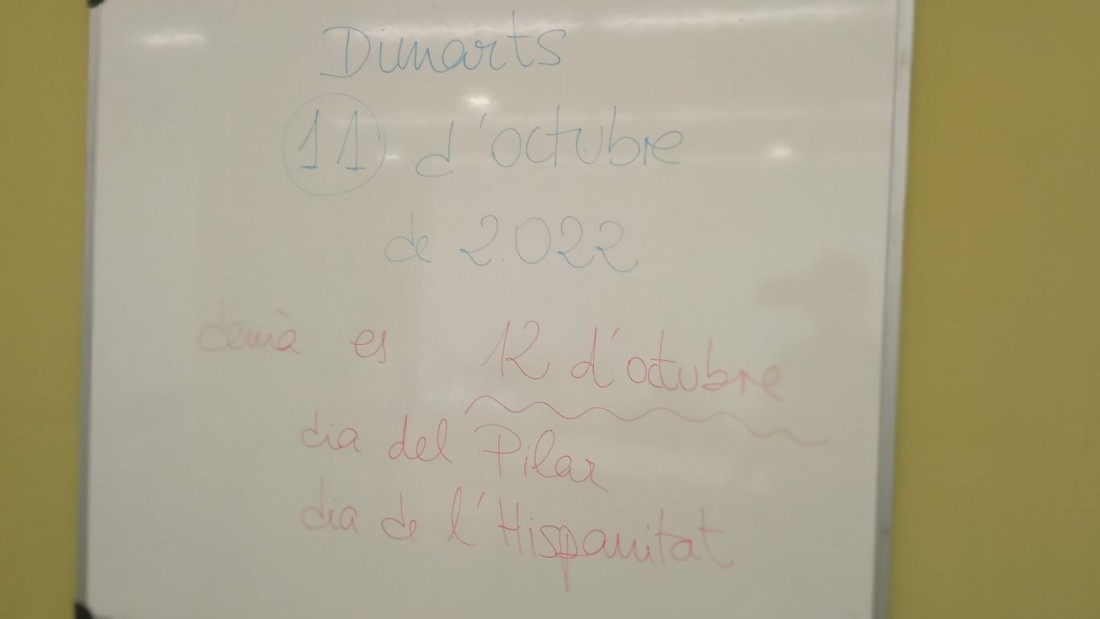 Dimarts
11 d'octubre
de 2.022
demà es 12 d'octubre
dia del Pilar
dia de l'Hispanitat